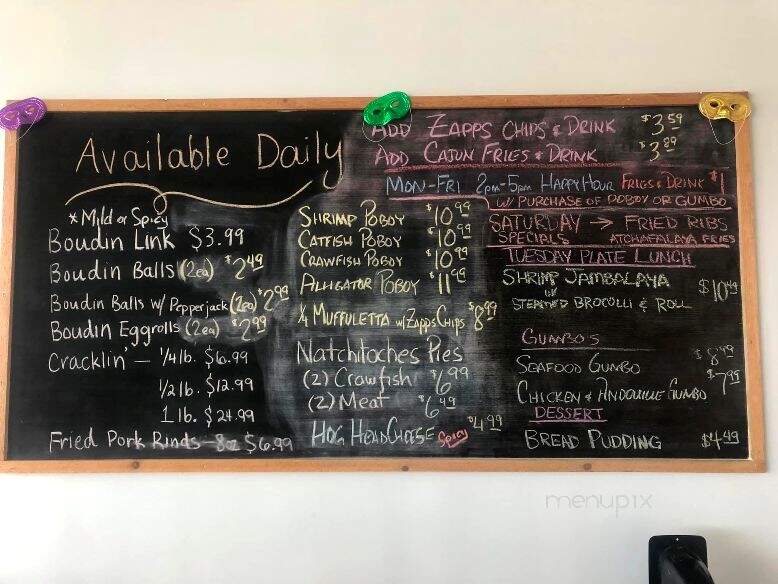 Available Daily
* Mild or Spicy
Boudin Link $3.99
Boudin Balls (2ea) $2.49
Boudin Balls w/ Pepperjack (2ea) $2.99
Boudin Eggrolls (2ea) $2.99
Cracklin' — 1/4 lb. $6.99
1/2 lb. $12.99
1 lb. $24.99
Fried Pork Rinds - 8oz $6.99
Shrimp Poboy $10.99
Catfish Poboy $10.99
Crawfish Poboy $10.99
Alligator Poboy $11.99
1/4 Muffuletta w/ Zapps Chips $8.99
Natchitoches Pies
(2) Crawfish $6.99
(2) Meat $6.49
Hog Head Cheese Spicy $4.99
Add Zapps Chips & Drink $3.59
Add Cajun Fries & Drink $3.89
Mon-Fri 2pm-5pm Happy Hour Fries & Drink $1
w/ Purchase of Poboy or Gumbo
Saturday → Fried Ribs
Specials Atchafalaya Fries
Tuesday Plate Lunch
Shrimp Jambalaya $10.49
w/
Steamed Brocolli & Roll
Gumbo's
Seafood Gumbo $8.49
Chicken & Andouille Gumbo $7.99
Dessert
Bread Pudding $4.49
menupix